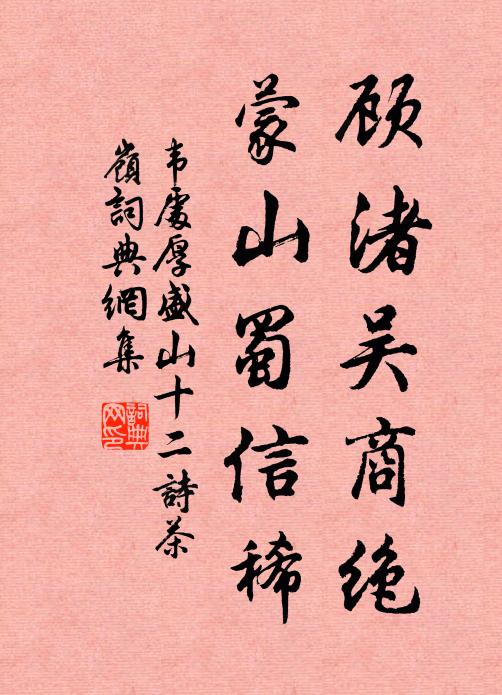 顾渚吴商绝
蒙山蜀信稀
韦處厚盛山十二詩茶
嶺詞典網集
詞典网印